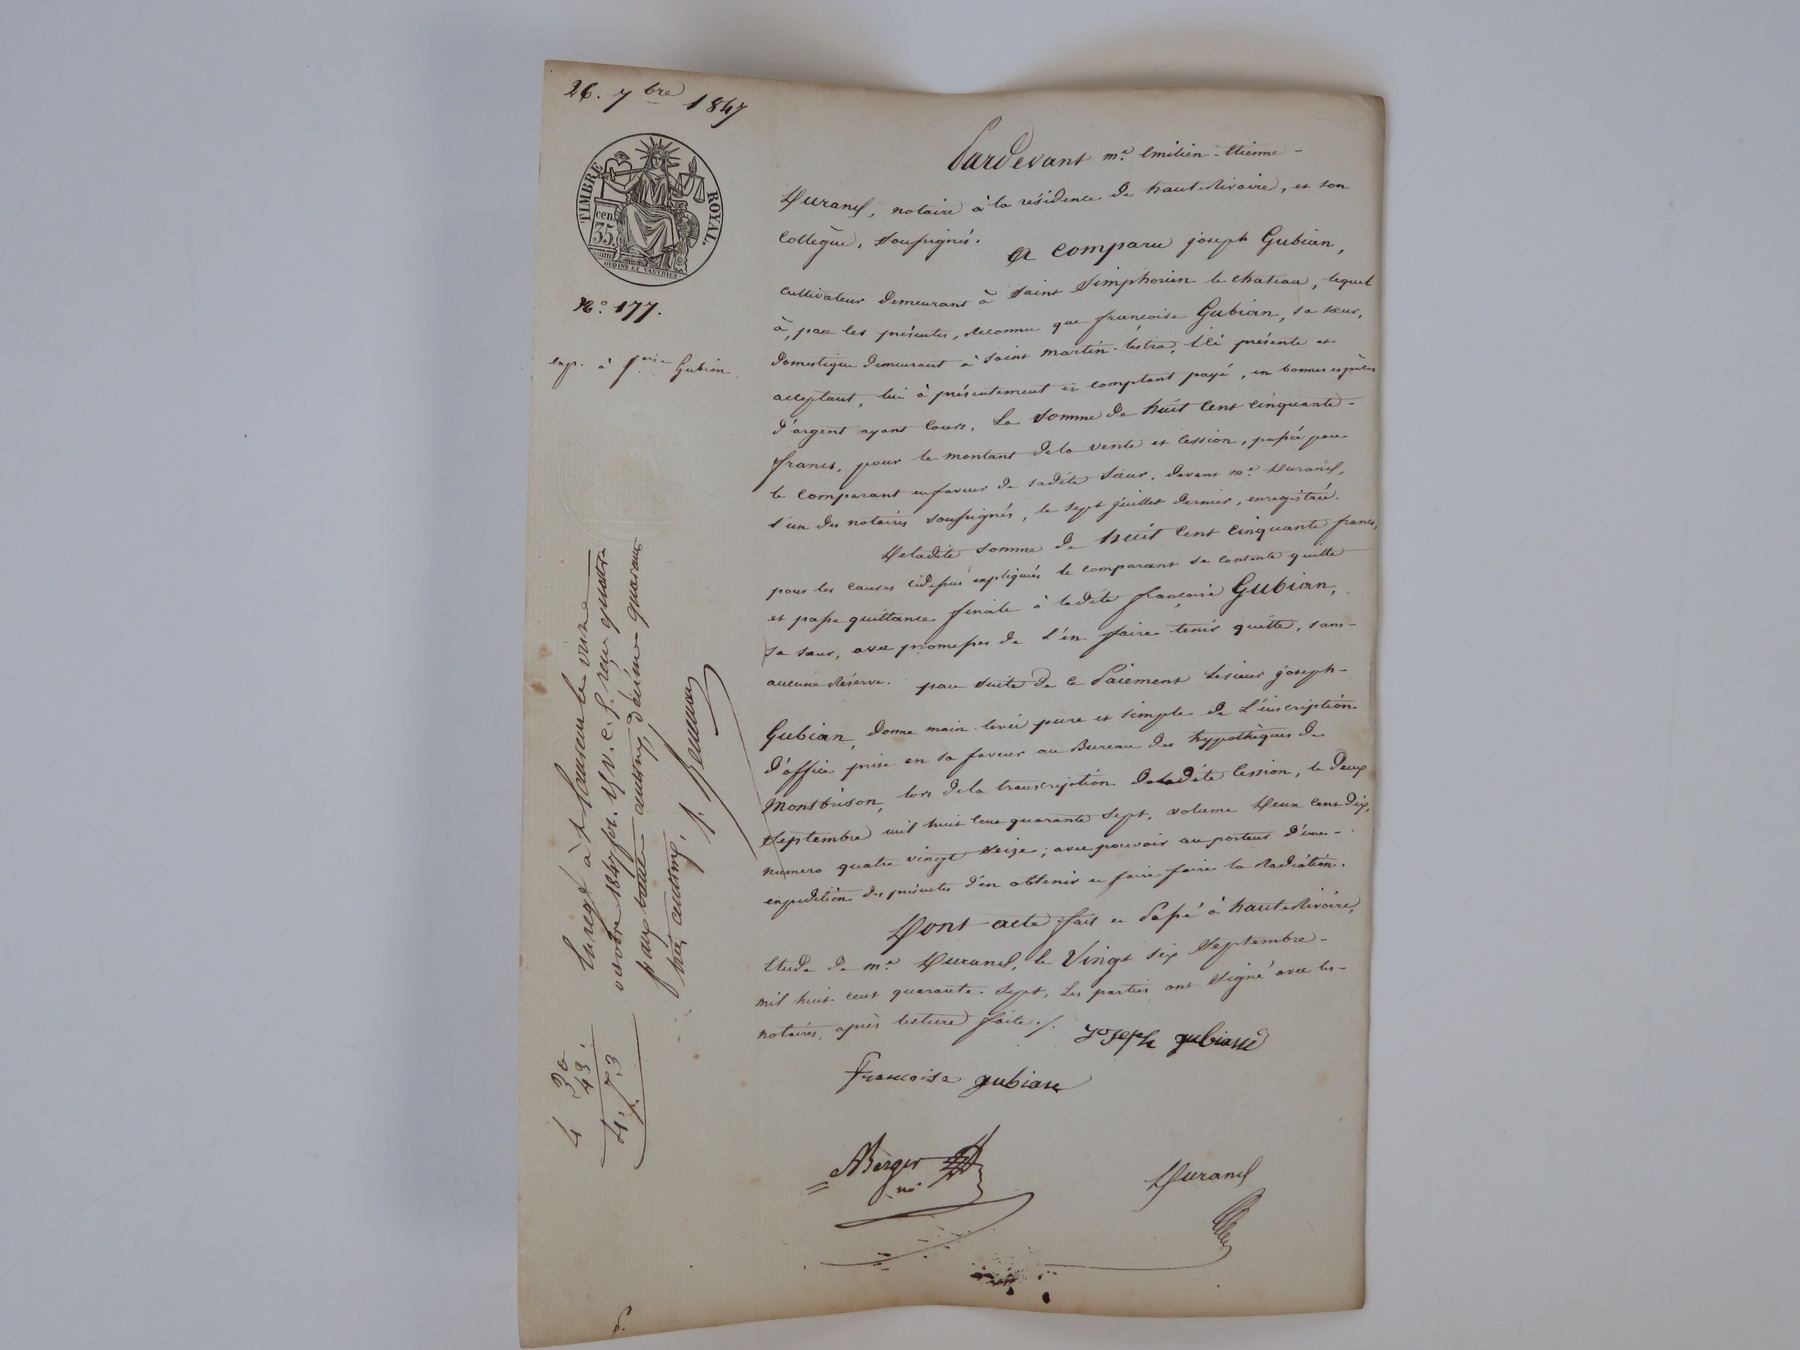 26. 7bre 1847
TIMBRE ROYAL.
cen.
35.
OUDINE ET VAUTHIER
No. 177.
exp. à fse Gubian
Pardevant me. Emilien-Etienne-
Durand, notaire à la résidence de haute Rivoire, et son
Collègue, soussignés.
A comparu joseph Gubian,
cultivateur demeurant à Saint Simphorien le chateau, lequel
à, par les présentes, Reconnu que françoise Gubian, sa sœur,
domestique demeurant à Saint martin-lestra, ici présente et
acceptant, lui à présentement et comptant payé, en bonnes espèces
d'argent ayant Cours, La Somme de huit Cent cinquante-
francs, pour le montant dela vente et Cession, passée par
le Comparant en faveur de sadite Sœur, devant me. Durand,
l'un des notaires soussignés, le sept juillet dernier, enregistrée.
Deladite somme de huit Cent cinquante francs,
pour les causes cidessus expliquées le comparant se contente quitte
et passe quittance finale à ladite françoise Gubian,
sa sœur, avec promesses de l'en faire tenir quitte, sans-
aucune Réserve. par suite de ce Paiement Lesieur joseph-
Gubian, donne main-levée pure et simple de L'inscription
d'office prise en sa faveur au Bureau des hypothèques de
Montbrison, lors dela transcription deladite Cession, le deux
Septembre mil huit cent quarante sept, volume Deux Cent dix,
numero quatre vingt Seize; avec pouvoir au porteur d'une-
expédition des présentes d'en obtenir et faire faire la Radiation.
Dont acte fait et Passé à haute Rivoire,
Etude de me. Durand, le Vingt six Septembre-
mil huit cent quarante-Sept. Les parties ont Signé avec les-
notaires, après lecture faite./.
joseph gubiand
francoise gubian
Berger
nre
Durand
Enregé à St Laurent le
octobre 1847 fo. 41 v. c. reçu quatre
francs trente centimes, décime quarante
trois centimes.
4 30
43.
4. 73